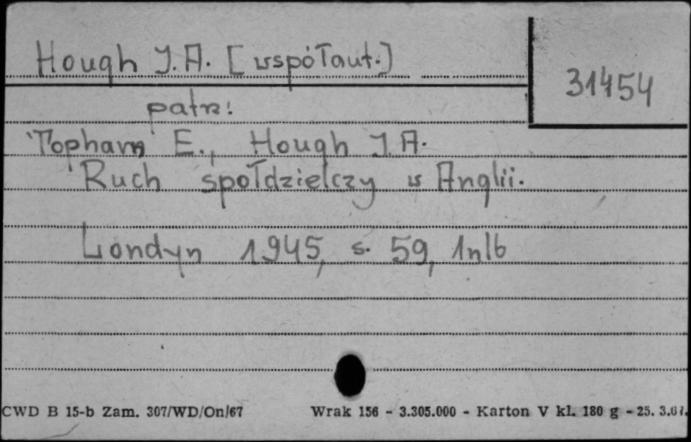 Hough J.A. [współaut.]
31454
patrz:
Topham E., Hough J.A.
Ruch spółdzielczy w Anglii.
Londyn 1945, s. 59, 1nlb
CWD B 15-b Zam. 307/WD/On/67 Wrak 156 - 3.305.000 - Karton V kl. 180 g - 25. 3.67.